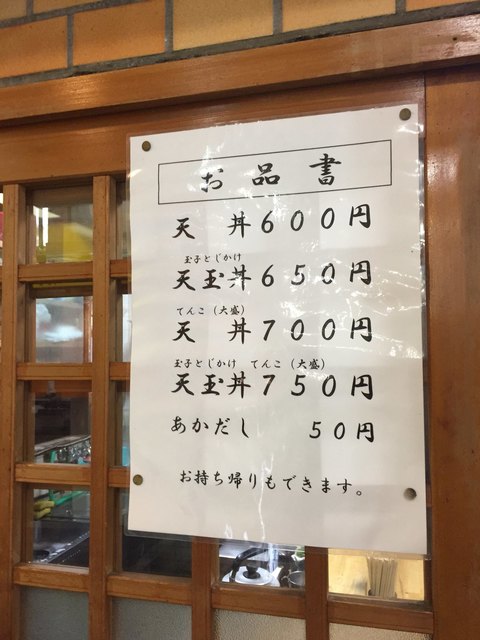 お品書
天丼600円
玉子とじかけ
天玉丼650円
てんこ(大盛)
天丼700円
玉子とじかけ てんこ(大盛)
天玉丼750円
あかだし 50円
お持ち帰りもできます。